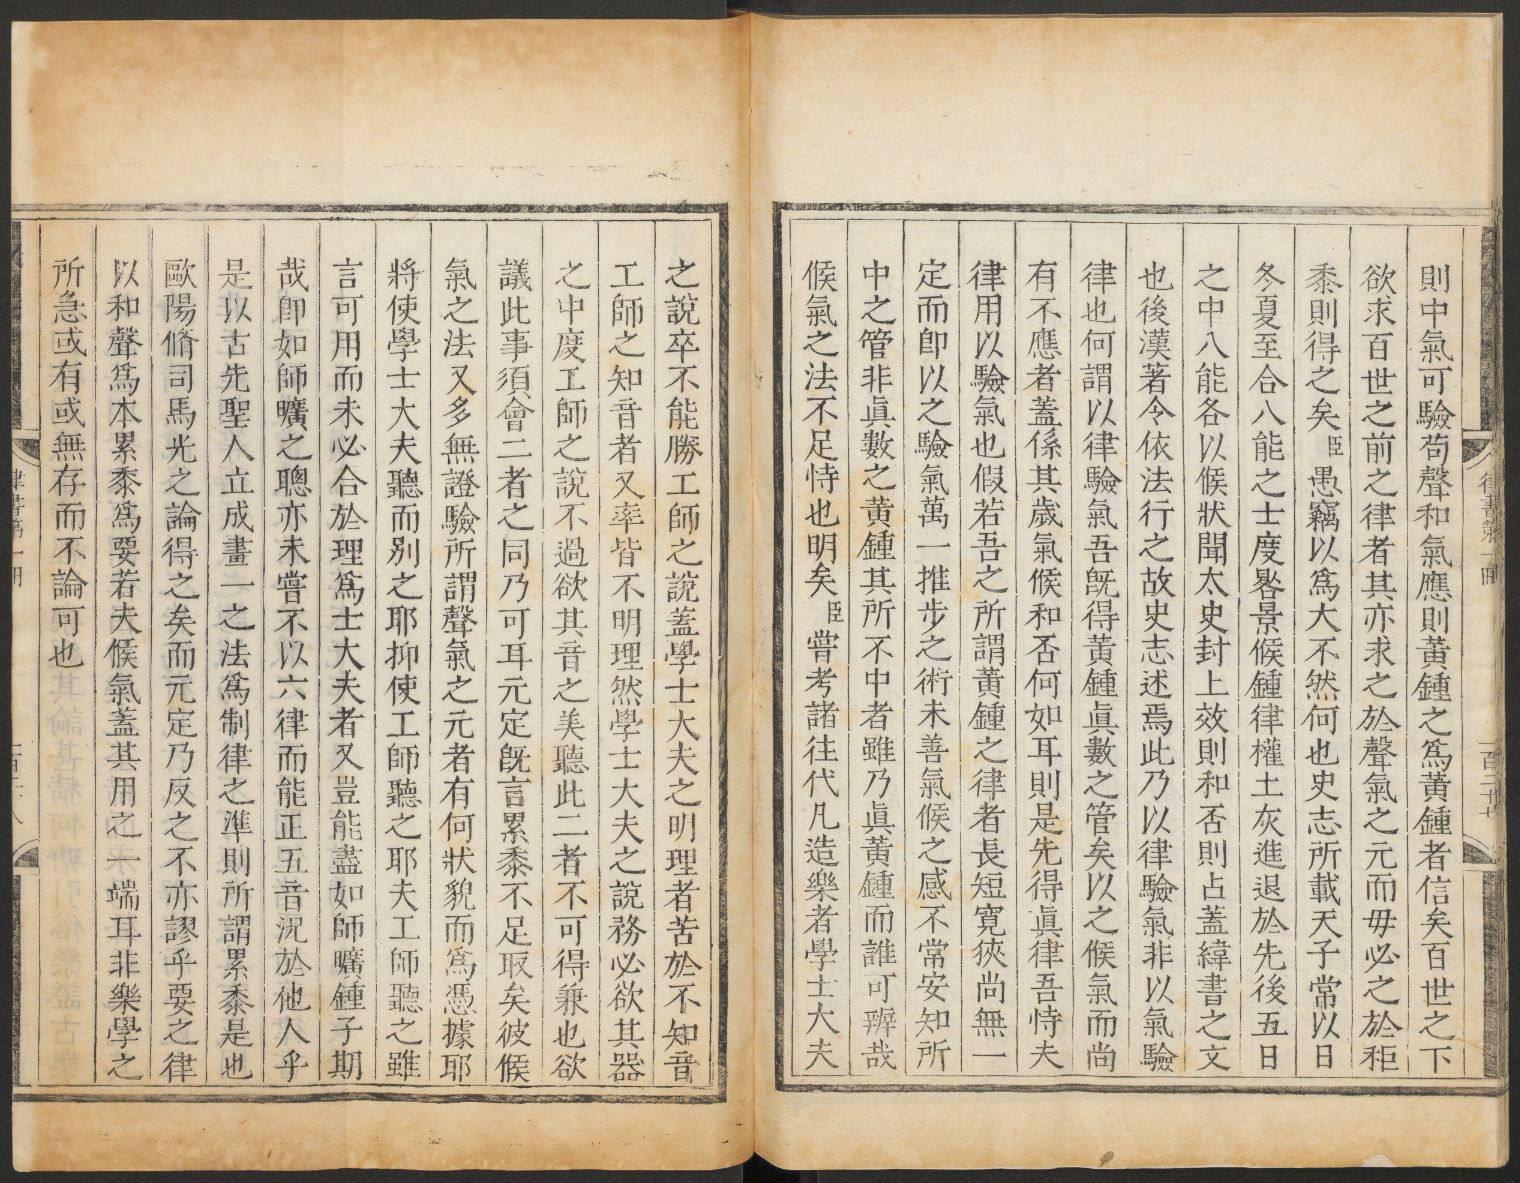 則中氣可驗苟聲和氣應則黃鍾之爲黃鍾者信矣百世之下
欲求百世之前之律者其亦求之於聲氣之元而毋必之於秬
黍則得之矣臣愚竊以爲大不然何也史志所載天子常以日
冬夏至合八能之士度晷景候鍾律權土灰進退於先後五日
之中八能各以候狀聞太史封上效則和否則占蓋緯書之文
也後漢著令依法行之故史志述焉此乃以律驗氣非以氣驗
律也何謂以律驗氣吾旣得黃鍾眞數之管矣以之候氣而尚
有不應者蓋係其歲氣候和否何如耳則是先得眞律吾恃夫
律用以驗氣也假若吾之所謂黃鍾之律者長短寬狹尚無一
定而卽以之驗氣萬一推步之術未善氣候之感不常安知所
中之管非眞數之黃鍾其所不中者雖乃眞黃鍾而誰可辨哉
候氣之法不足恃也明矣臣嘗考諸往代凡造樂者學士大夫
之說卒不能勝工師之說蓋學士大夫之明理者苦於不知音
工師之知音者又率皆不明理然學士大夫之說務必欲其器
之中度工師之說不過欲其音之美聽此二者不可得兼也欲
議此事須會二者之同乃可耳元定旣言累黍不足取矣彼候
氣之法又多無證驗所謂聲氣之元者有何狀貌而爲憑據耶
將使學士大夫聽而別之耶抑使工師聽之耶夫工師聽之雖
言可用而未必合於理爲士大夫者又豈能盡如師曠鍾子期
哉卽如師曠之聰亦未嘗不以六律而能正五音況於他人乎
是以古先聖人立成畫一之法爲制律之準則所謂累黍是也
歐陽脩司馬光之論得之矣而元定乃反之不亦謬乎要之律
以和聲爲本累黍爲要若夫候氣蓋其用之一端耳非樂學之
所急或有或無存而不論可也